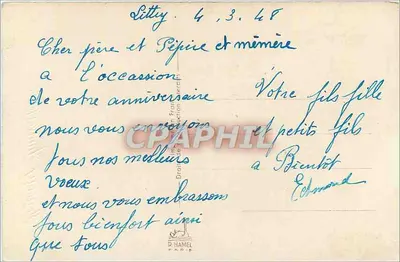 Littry. 4.3.48
Cher père et Pépère et mémère
a l'occassion
de votre anniversaire
nous vous envoyons
tous nos meilleurs
vœux.
et nous vous embrassons
tous bienfort ainsi
que tous
Votre fils fille
et petits fils
a Bientôt
Edmond
CPARAMA
D. HAMEL
PARIS